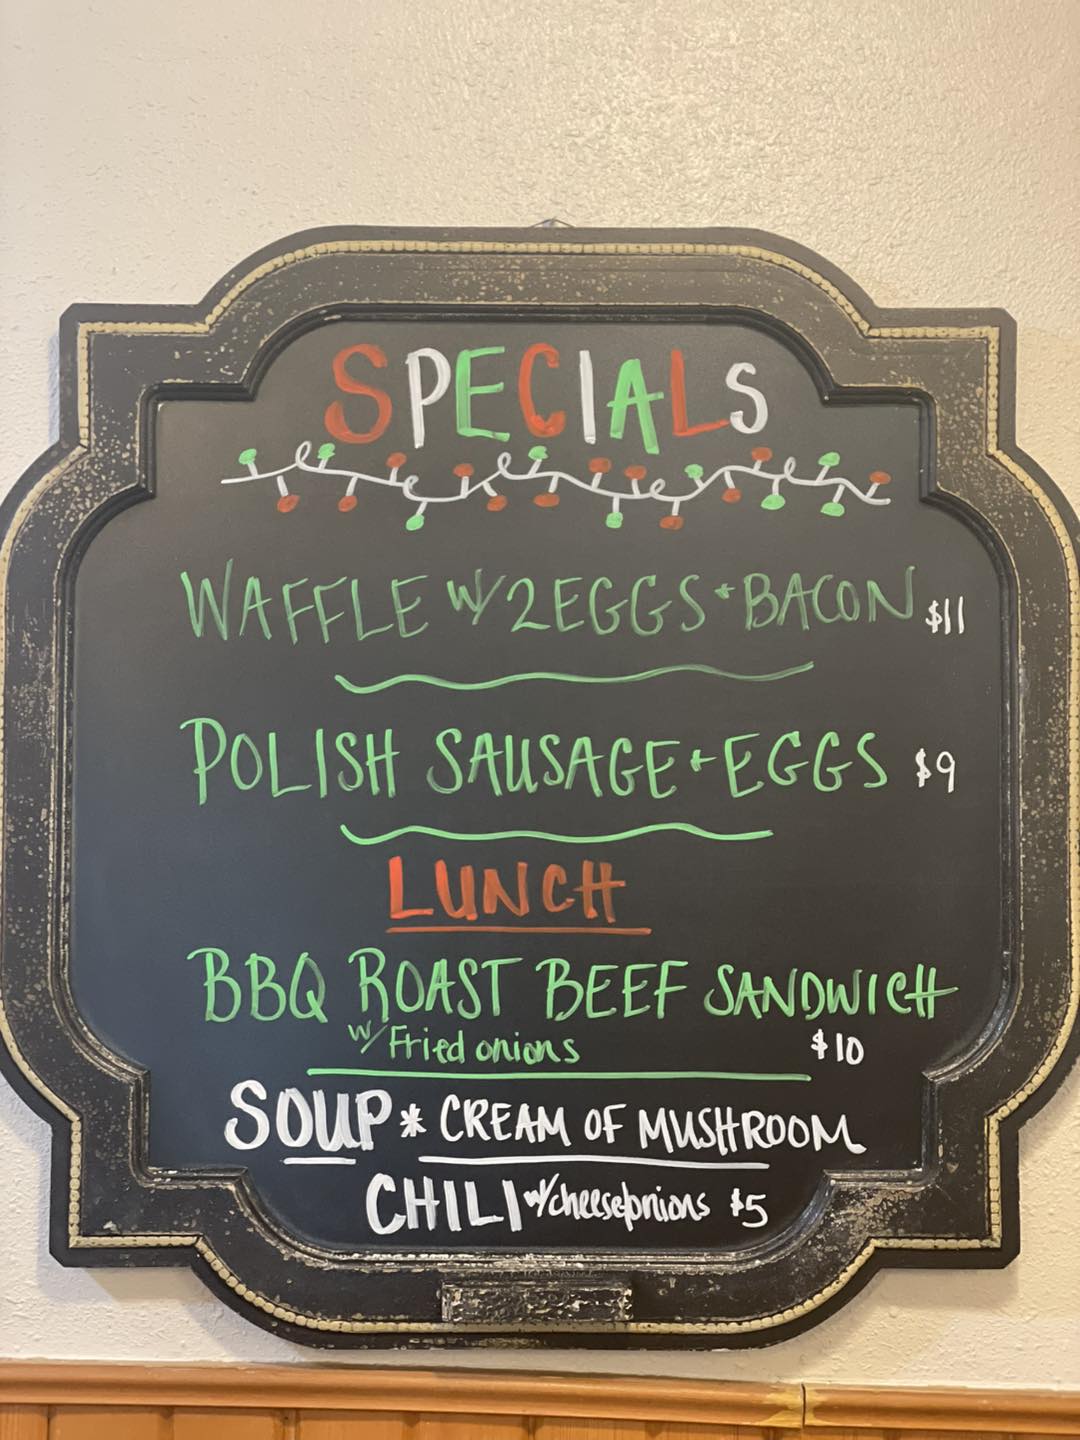 SPECIALS
WAFFLE W/ 2 EGGS + BACON $11
POLISH SAUSAGE + EGGS $9
LUNCH
BBQ ROAST BEEF SANDWICH
w/ Fried onions $10
SOUP * CREAM OF MUSHROOM
CHILI w/ cheese & onions $5